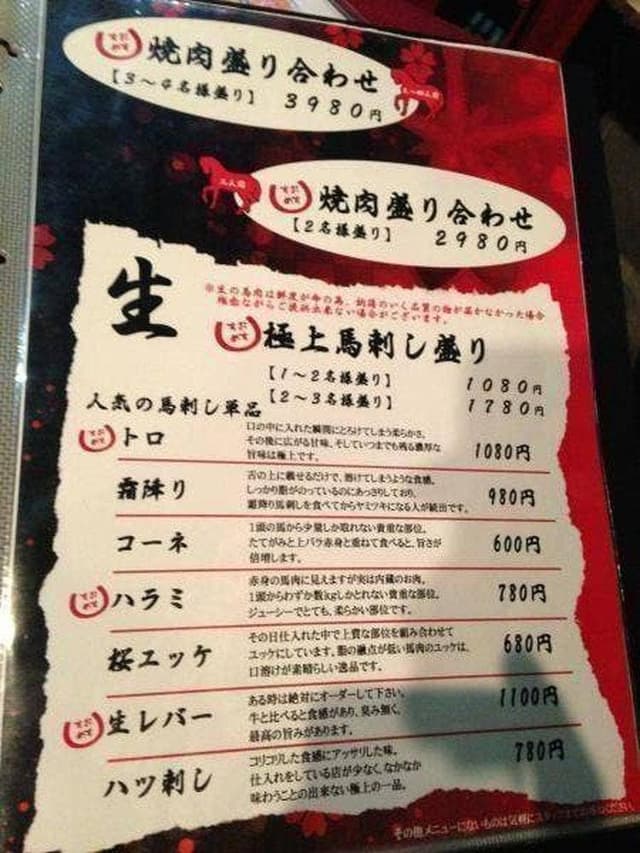 おすすめ
焼肉盛り合わせ
【3〜4名様盛り】 3980円
おすすめ
焼肉盛り合わせ
【2名様盛り】 2980円
生
※生の馬肉は鮮度が命の為、納得のいく品質の物が届かなかった場合
残念ながらご提供出来ない場合がございます。
おすすめ
極上馬刺し盛り
【1〜2名様盛り】 1080円
【2〜3名様盛り】 1780円
人気の馬刺し単品
おすすめ
トロ
口の中に入れた瞬間にとろけてしまう柔らかさ。
その後に広がる甘味、そしていつまでも残る濃厚な
旨味は極上です。
1080円
霜降り
舌の上に載せるだけで、溶けてしまうような食感。
しっかり脂がのっているのにあっさりしており、
霜降り馬刺しを食べてからヤミツキになる人が続出です。
980円
コーネ
1頭の馬から少量しか取れない貴重な部位。
たてがみと上バラ赤身と重ねて食べると、旨さが
倍増します。
600円
おすすめ
ハラミ
赤身の馬肉に見えますが実は内蔵のお肉。
1頭からわずか数kgしかとれない貴重な部位。
ジューシーでとても、柔らかい部位です。
780円
桜エッケ
その日仕入れた中で上質な部位を組み合わせて
ユッケにしています。脂の融点が低い馬肉のユッケは、
口溶けが素晴らしい逸品です。
680円
おすすめ
生レバー
ある時は絶対にオーダーして下さい。
牛と比べると食感があり、臭み無く、
最高の旨みがあります。
1100円
ハツ刺し
コリコリした食感にアッサリした味。
仕入れをしている店が少なく、なかなか
味わうことの出来ない極上の一品。
780円
その他メニューにないものは気軽にスタッフまで